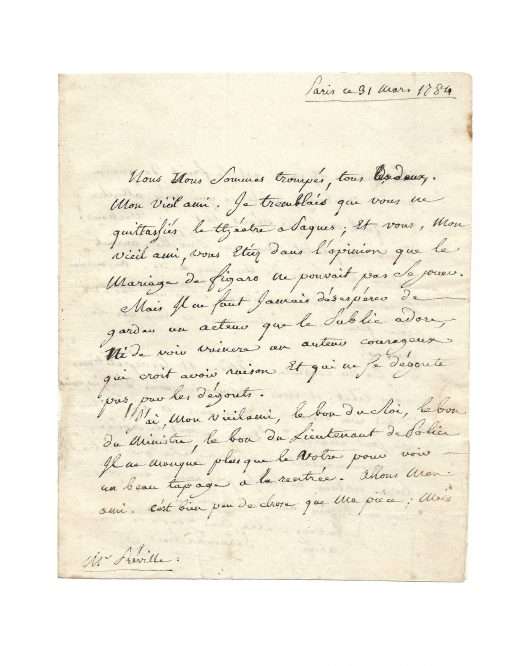 Paris ce 31 Mars 1784
Nous Nous Sommes trompés, tous les deux,
Mon vieil ami. Je tremblais que vous ne
quittassiés le théatre a Paques; Et vous, Mon
vieil ami, vous Etiez dans l'opinion que le
Mariage de figaro ne pouvait pas Se jouer.
Mais Il ne faut Jamais désespérer de
garder un acteur que le Public adore,
Ni de voir vaincre un auteur courageux
qui croit avoir raison Et qui ne Se dégoute
pas, par les dégouts.
J'ai, Mon vieil ami, le bon du Roi, le bon
du Ministre, le bon du Lieutenant de Police
Il ne manque plus que le Votre pour voir
un beau tapage a la rentrée. Allons Mon
ami. c'est bien peu de chose que Ma pièce; Mais
Mr Préville.